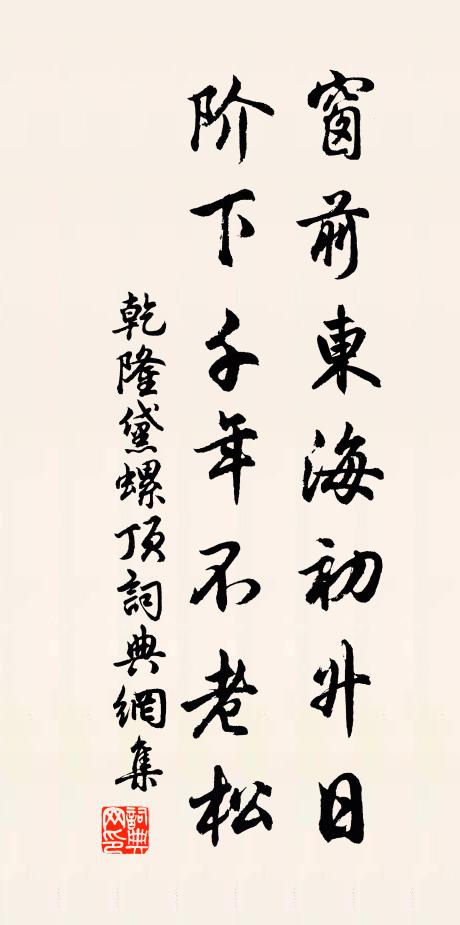 窗前東海初升日
阶下千年不老松
乾隆黛螺顶詞典網集
詞典
网印